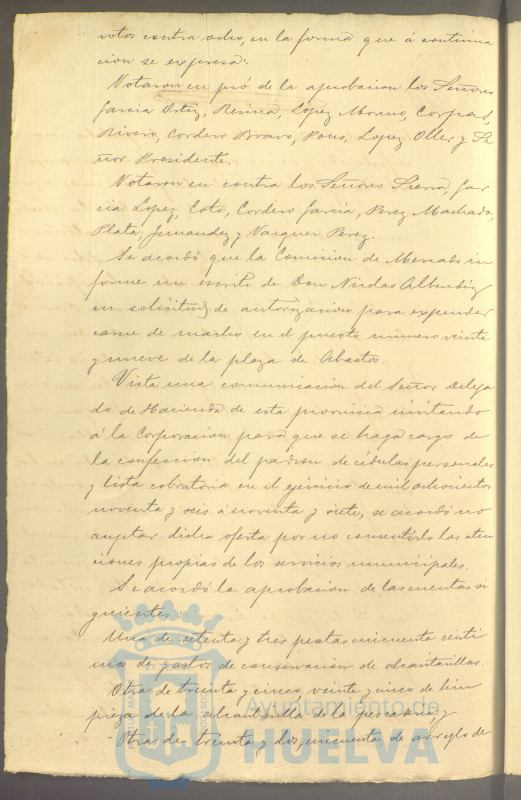 votos contra ocho, en la forma que á continua
cion se expresa:
Votaron en pró de la aprobacion los Señores
Garcia Ortiz, Resina, Lopez Moreno, Corpas,
Rivero, Cordero Bravo, Pons, Lopez Oller y Se
ñor Presidente.
Votaron en contra los Señores Sierra, Gar
cia Lopez, Coto, Cordero Garcia, Perez Machado,
Plata, Fernandez y Vazquez Perez.
Se acordó que la Comision de Mercado in
forme un escrito de Don Nicolas Albendiz
en solicitud de autorizacion para expender
carne de macho en el puesto número veinte
y nueve de la plaza de Abastos.
Vista una comunicacion del Señor Delega
do de Hacienda de esta provincia invitando
á la Corporacion para que se haga cargo de
la confeccion del padron de cédulas personales
y lista cobratoria en el ejercicio de mil ochocientos
noventa y seis á noventa y siete, se acordó no
aceptar dicha oferta por no consentirlo las aten
ciones propias de los servicios municipales.
Se acordó la aprobacion de las cuentas si
guientes:
Una de setenta y tres pesetas cincuenta cénti
mos de gastos de conservacion de alcantarillas.
Otra de treinta y cinco, veinte y cinco de lim
pieza de la alcantarilla de la pescaderia, y
Otra de, treinta y dos, cincuenta de arreglo de
Ayuntamiento de
HUELVA